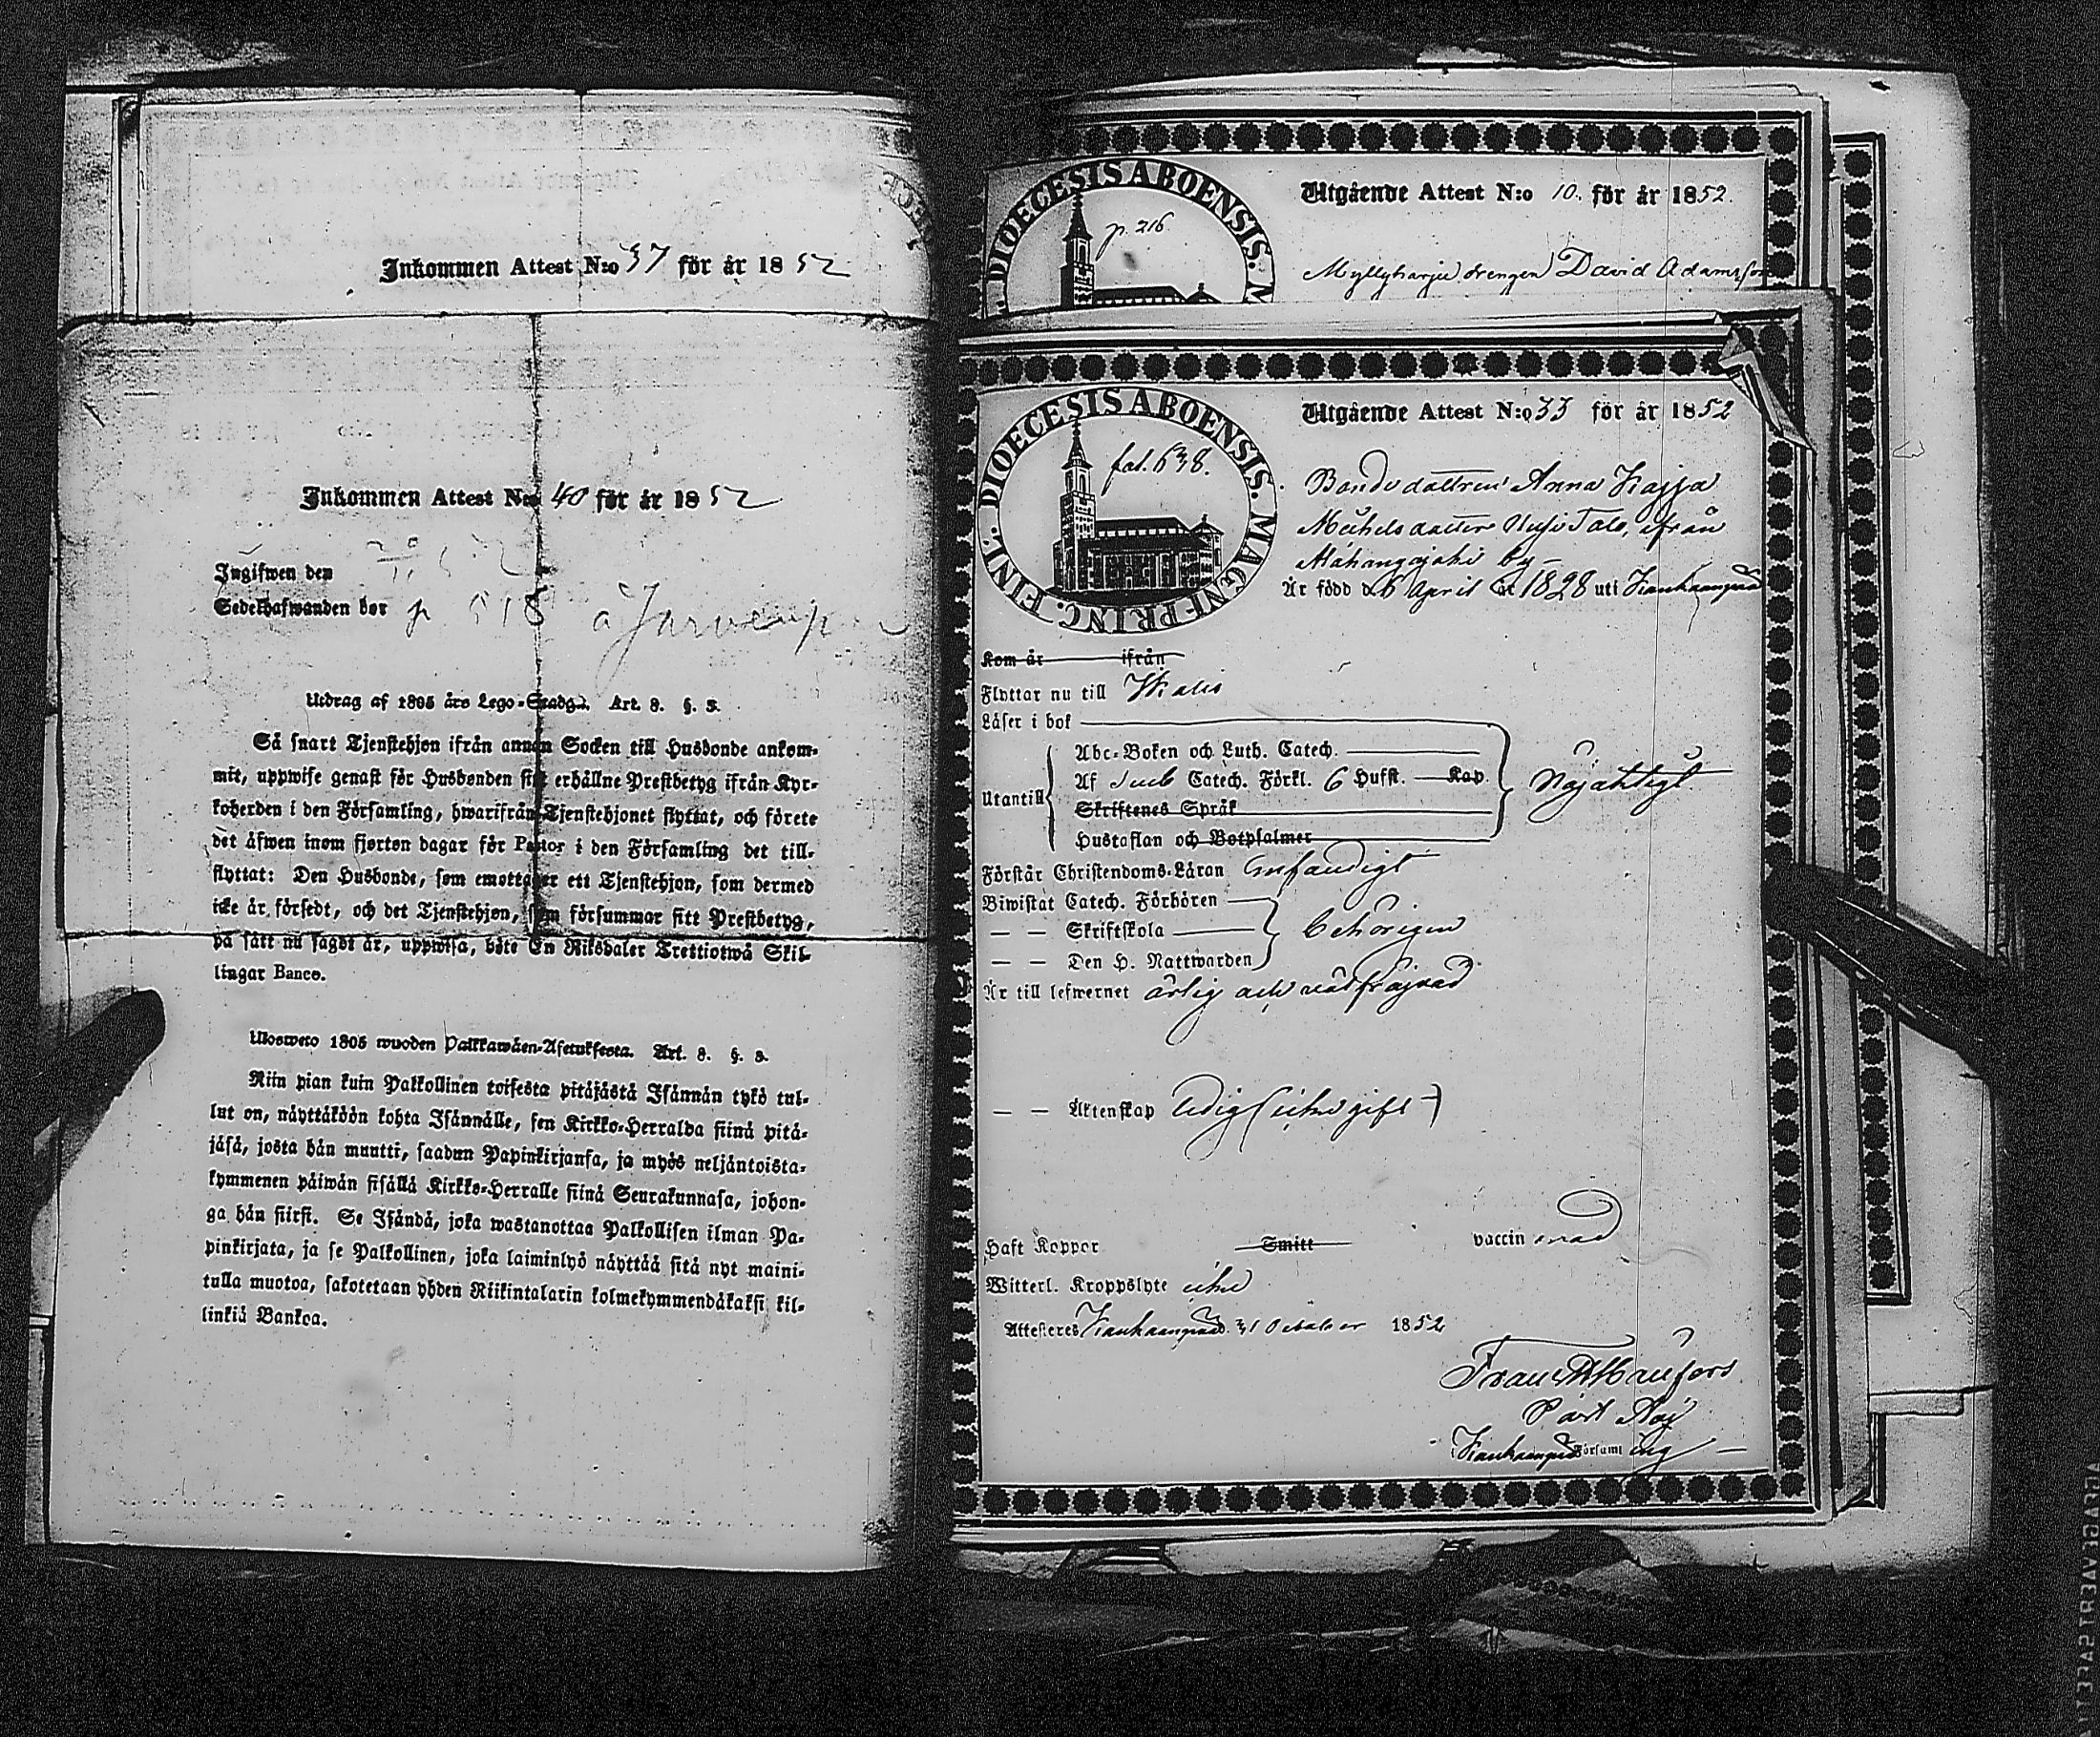 Inkommen Attest N:o 37 för år 1852
Inkommen Attest N:o 40 för år 1852
Ingifwen den
Sedelhafwanden bor p. 518 å Jarvenp
Utdrag af 1805 års Lego-Stadga. Art. 8. §. 3.
Så snart Tjenstehjon ifrån annan Socken till Husbonde ankom-
mit, uppwise genast för Husbonden sitt erhållne Prestbetyg ifrån Kyr-
koherden i den Församling, hwarifrån Tjenstehjonet flyttat, och förete
det äfwen inom fjorton dagar för Pastor i den Församling det till-
flyttat: Den Husbonde, som emottager ett Tjenstehjon, som dermed
icke är försedt, och det Tjenstehjon, som försummar sitt Prestbetyg,
på sätt nu sagdt är, uppwisa, böte En Riksdaler Trettiotwå Skil-
lingar Banco.
Uloswето 1805 wuoden Palkkawäen-Asetuksesta. Art. 8. §. 3.
Niin pian kuin Palkollinen toisesta pitäjästä Isännän tykö tul-
lut on, näyttäköön kohta Isännälle, sen Kirkko-Herralda siinä pitä-
jäsä, josta hän muutti, saadun Papinkirjansa, ja myös neljäntoista-
kymmenen päiwän sisällä Kirkko-Herralle siinä Seurakunnasa, johon-
ga hän siirsi. Se Isändä, joka wastanottaa Palkollisen ilman Pa-
pinkirjata, ja se Palkollinen, joka laiminlyö näyttää sitä nyt maini-
tulla muotoa, sakotetaan yhden Riikintalarin kolmekymmendäkaksi kil-
linkiä Bankoa.
DIOECESIS ABOENSIS. M
p. 216
Utgående Attest N:o 10. för år 1852.
Myllyharju drengen David Adamsson
DIOECESIS ABOENSIS. MAGNI PRINC. FINL.
fol. 638.
Utgående Attest N:o 33 för år 1852
Bonde dottren Anna Kajsa
Michelsdotter Uusi Talo, ifrån
by
Är född d. 6 April år 1828 uti Kankaanpää
Kom år ifrån
Flyttar nu till
Läser i bok
Utantill
Abc-Boken och Luth. Catech.
Af Sveb Catech. Förkl. 6 Hufst. Kap.
Skriftenes Språk
Hustaflan och Botpsalmer
Nöjaktigt
Förstår Christendoms-Läran Enfaldigt
Biwistat Catech. Förhören
— — Skriftskola
— — Den H. Nattwarden
behörigen
Är till lefwernet ärlig och välfräjdad
— — Äktenskap ledig (icke gift)
Haft Koppor Smitt vaccinerad
Witterl. Kroppslyte icke
Attesteres Kankaanpää 31 October 1852
Past Adj
Kankaanpää Församling